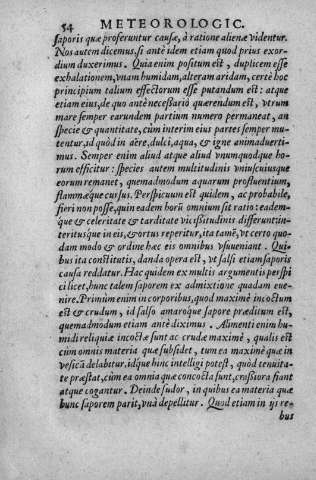 54 METEOROLOGIC.
saporis quæ proferuntur causæ, à ratione alienæ videntur.
Nos autem dicemus, si antè idem etiam quod prius exor-
dium duxerimus. Quia enim positum est, duplicem esse
exhalationem, vnam humidam, alteram aridam, certè hoc
principium talium effectorum esse putandum est: atque
etiam eius, de quo antè necessariò quærendum est, vtrum
mare semper earundem partium numero permaneat, an
specie & quantitate, cùm interim eius partes semper mu-
tentur, id quod in aëre, dulci, aqua, & igne animaduerti-
mus. Semper enim aliud atque aliud vnumquodque ho-
rum efficitur: species autem multitudinis vniuscuiusque
eorum remanet, quemadmodum aquarum profluentium,
flammæque cursus. Perspicuum est quidem, ac probabile,
fieri non posse, quin eadem horũ omnium sit ratio: eadem-
que & celeritate & tarditate vicissitudinis differunt: in-
teritusque in eis, & ortus reperitur, ita tamẽ, vt certo quo-
dam modo & ordine hæc eis omnibus vsuueniant. Qui-
bus ita constitutis, danda opera est, vt salsi etiam saporis
causa reddatur. Hac quidem ex multis argumentis perspi
ci licet, hunc talem saporem ex admixtione quadam eue-
nire. Primùm enim in corporibus, quod maximè incoctum
est & crudum, id salso amaroque sapore præditum est,
quemadmodum etiam antè diximus. Alimenti enim hu-
midi reliquiæ incoctæ sunt ac crudæ maximè, qualis est
cùm omnis materia quæ subsidet, tum ea maximè quæ in
vesicã delabitur. idque hinc intelligi potest, quòd tenuita-
te præstat, cùm ea omnia quæ concocta sunt, crassiora fiant
atque cogantur. Deinde sudor, in quibus ea materia quæ
hunc saporem parit, vnà depellitur. Quod etiam in ijs re-
bus